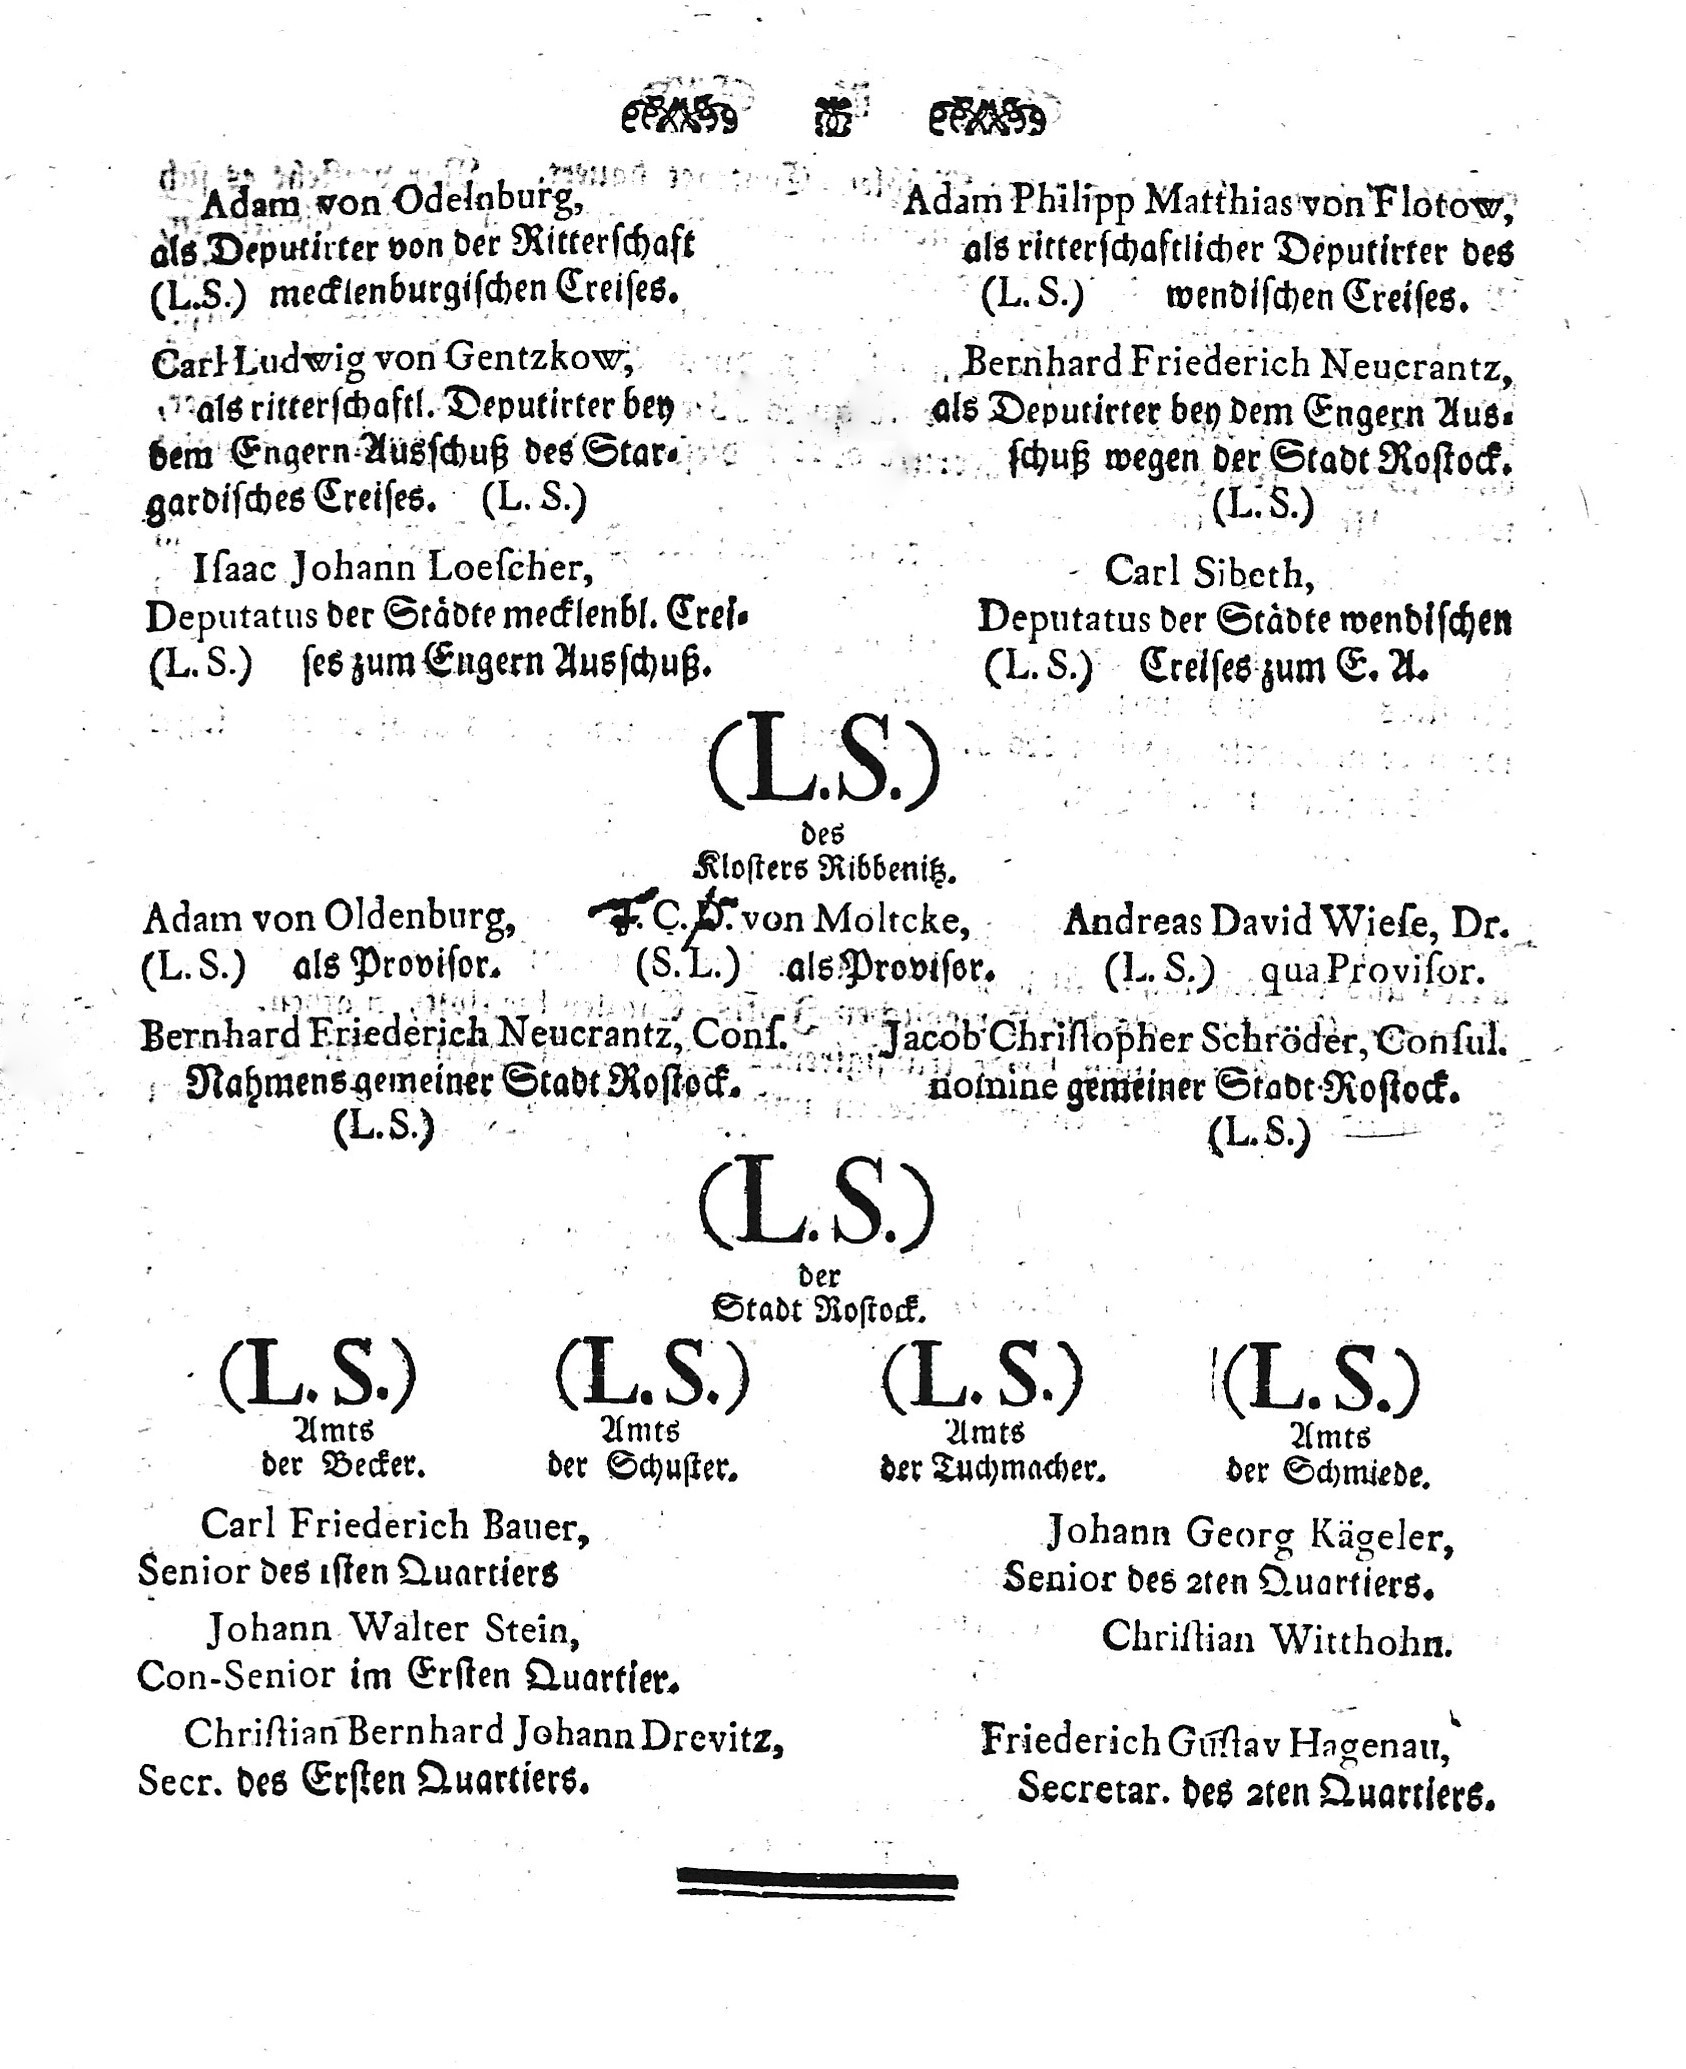 Adam von Odelnburg,
als Deputirter von der Ritterſchaft
(L.S.) mecklenburgiſchen Creiſes.
Adam Philipp Matthias von Flotow,
als ritterſchaftlicher Deputirter des
(L. S.) wendiſchen Creiſes.
Carl Ludwig von Gentzkow,
als ritterſchaftl. Deputirter bey
dem Engern Ausſchuß des Star-
gardiſches Creiſes. (L. S.)
Bernhard Friederich Neucrantz,
als Deputirter bey dem Engern Aus-
ſchuß wegen der Stadt Roſtock.
(L. S.)
Iſaac Johann Loeſcher,
Deputatus der Städte mecklenbl. Crei-
(L. S.) ſes zum Engern Ausſchuß.
Carl Sibeth,
Deputatus der Städte wendiſchen
(L. S.) Creiſes zum E. A.
(L.S.)
des
Kloſters Ribbenitz.
Adam von Oldenburg,
(L. S.) als Proviſor.
C. von Moltcke,
(S. L.) als Proviſor.
Andreas David Wieſe, Dr.
(L. S.) qua Proviſor.
Bernhard Friederich Neucrantz, Conſ.
Nahmens gemeiner Stadt Roſtock.
(L. S.)
Jacob Chriſtopher Schröder, Conſul.
nomine gemeiner Stadt Roſtock.
(L. S.)
(L. S.)
der
Stadt Roſtock.
(L. S.) (L. S.) (L. S.) (L. S.)
Amts Amts Amts Amts
der Becker. der Schuſter. der Tuchmacher. der Schmiede.
Carl Friederich Bauer,
Senior des 1ſten Quartiers
Johann Georg Kägeler,
Senior des 2ten Quartiers.
Johann Walter Stein,
Con-Senior im Erſten Quartier.
Chriſtian Witthohn.
Chriſtian Bernhard Johann Drevitz,
Secr. des Erſten Quartiers.
Friederich Guſtav Hagenau,
Secretar. des 2ten Quartiers.